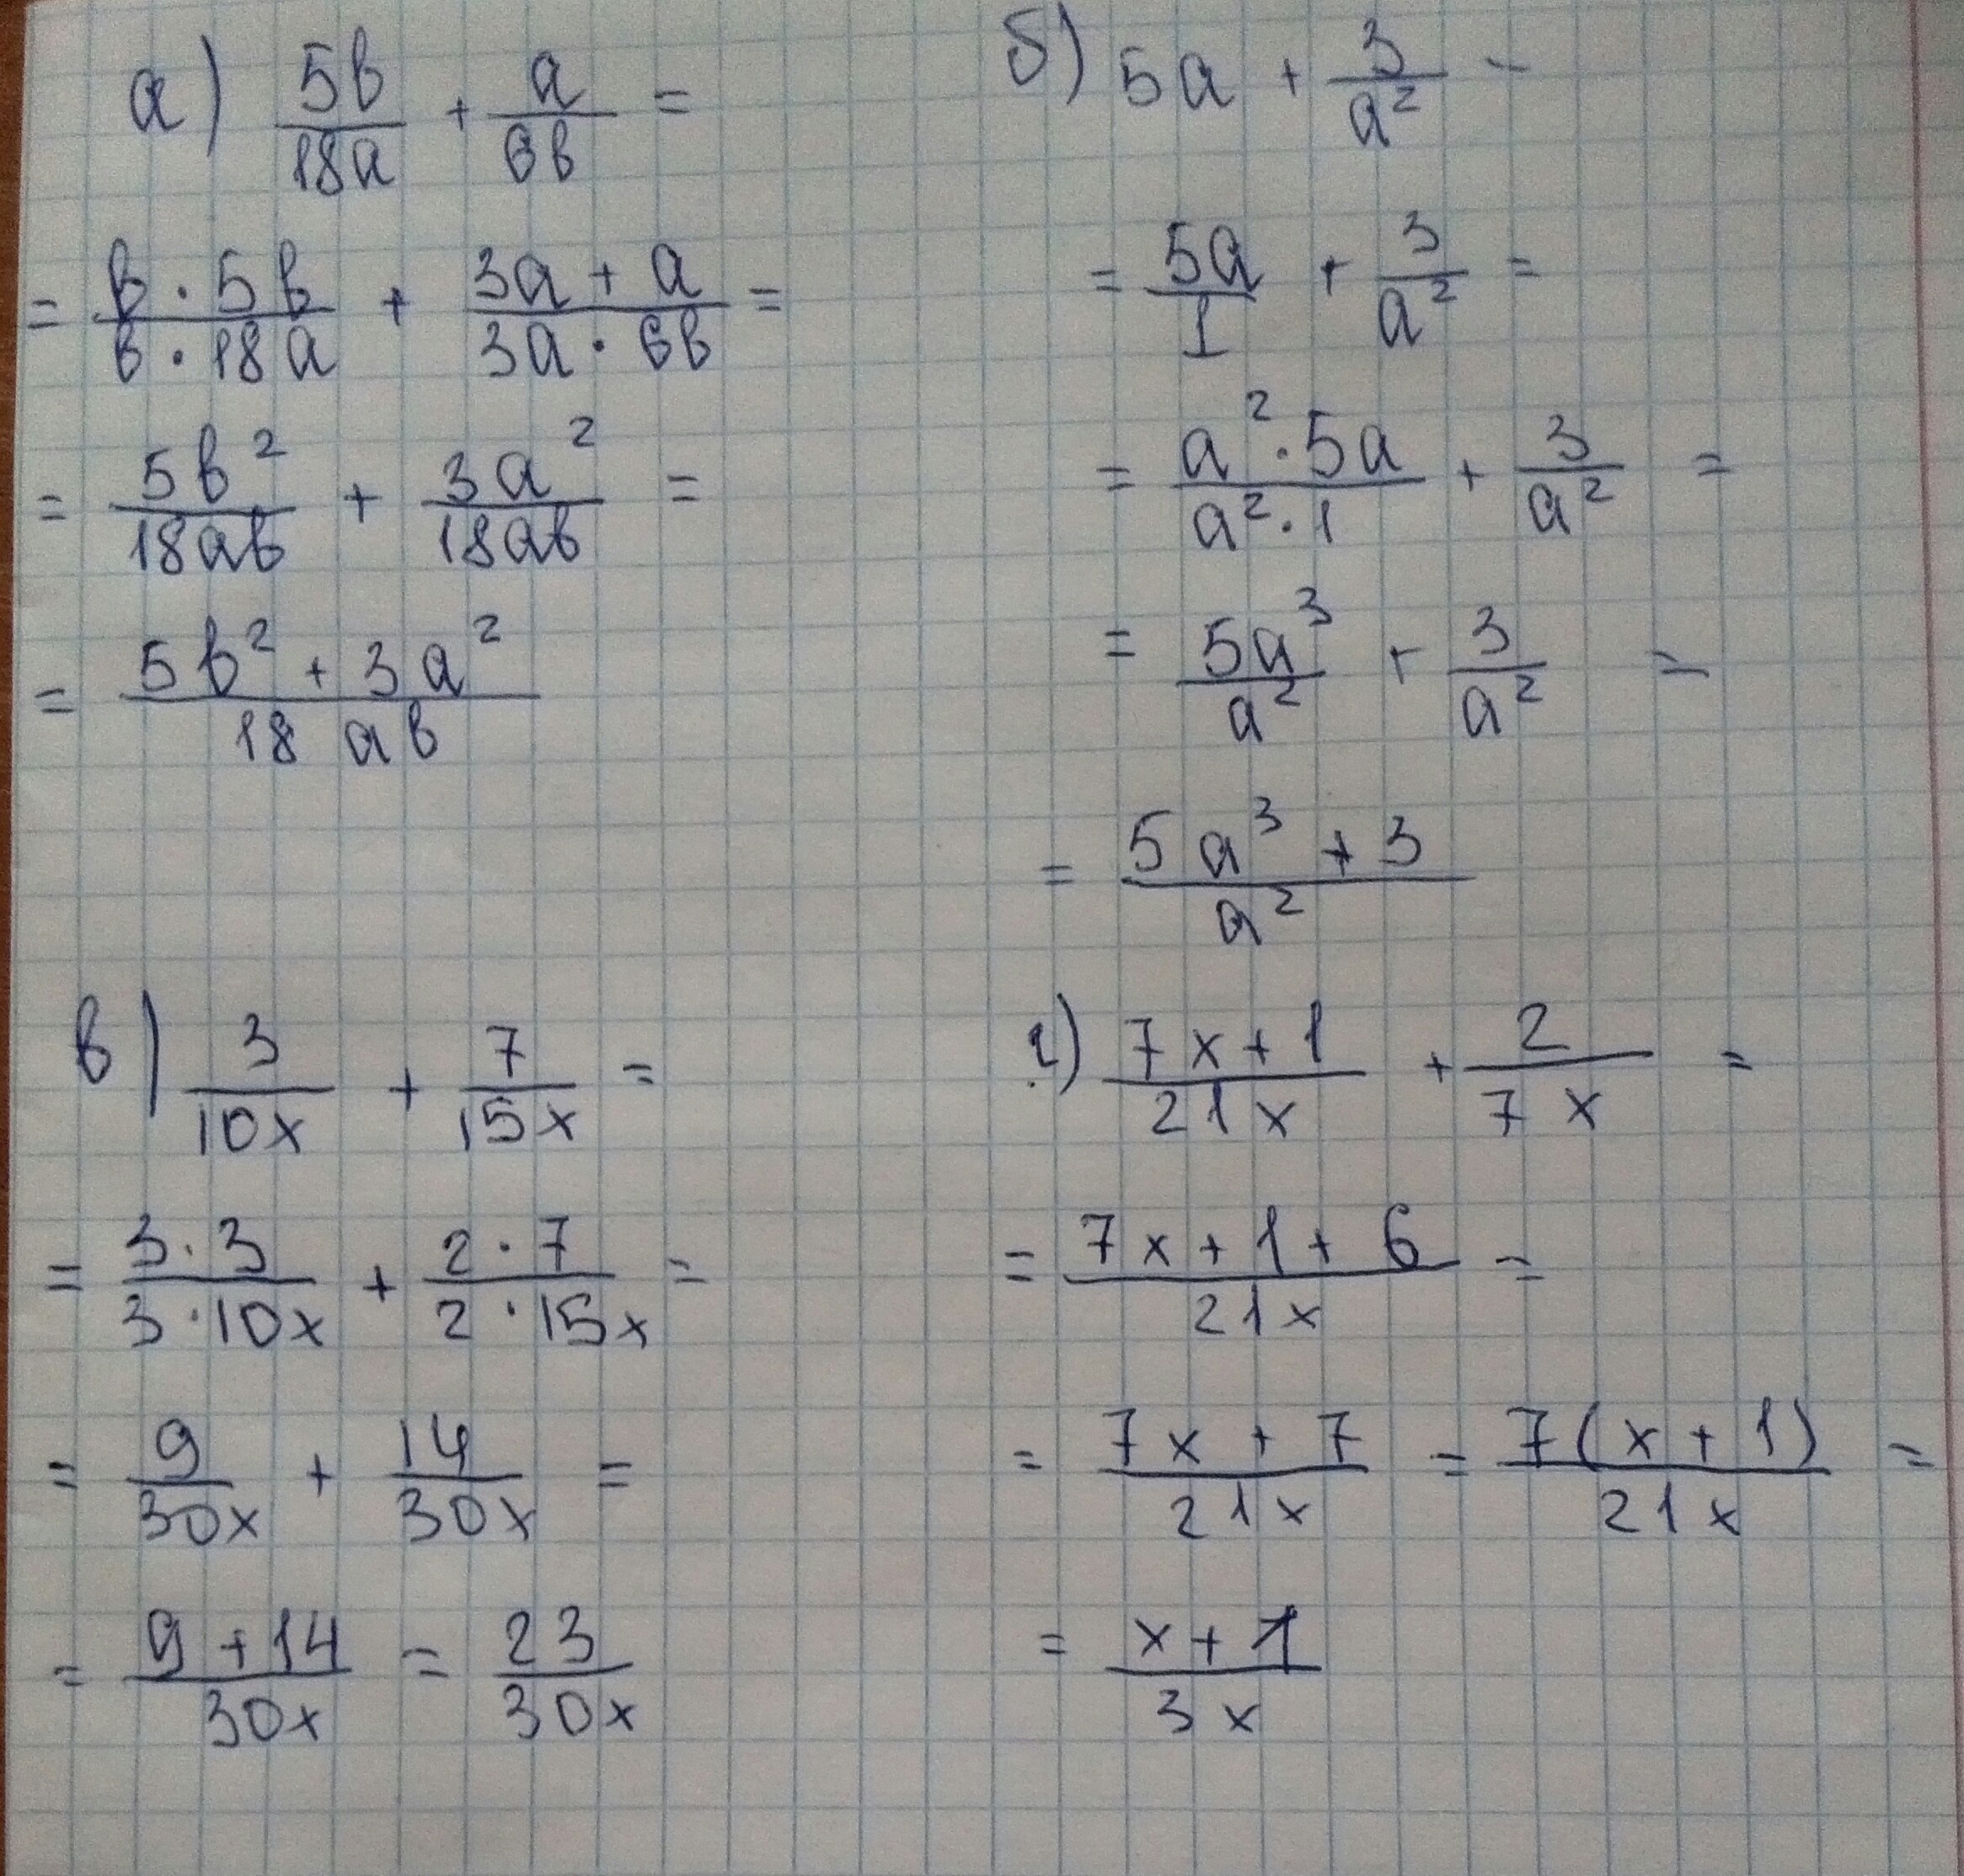 а) 5b/18a + a/6b =
= b · 5b / b · 18a + 3a + a / 3a · 6b =
= 5b²/18ab + 3a²/18ab =
= 5b² + 3a² / 18ab
б) 5a + 3/a² =
= 5a/1 + 3/a² =
= a² · 5a / a² · 1 + 3/a² =
= 5a³/a² + 3/a² =
= 5a³ + 3 / a²
в) 3/10x + 7/15x =
= 3 · 3 / 3 · 10x + 2 · 7 / 2 · 15x =
= 9/30x + 14/30x =
= 9 + 14 / 30x = 23/30x
г) 7x + 1 / 21x + 2/7x =
= 7x + 1 + 6 / 21x =
= 7x + 7 / 21x = 7(x + 1) / 21x =
= x + 1 / 3x